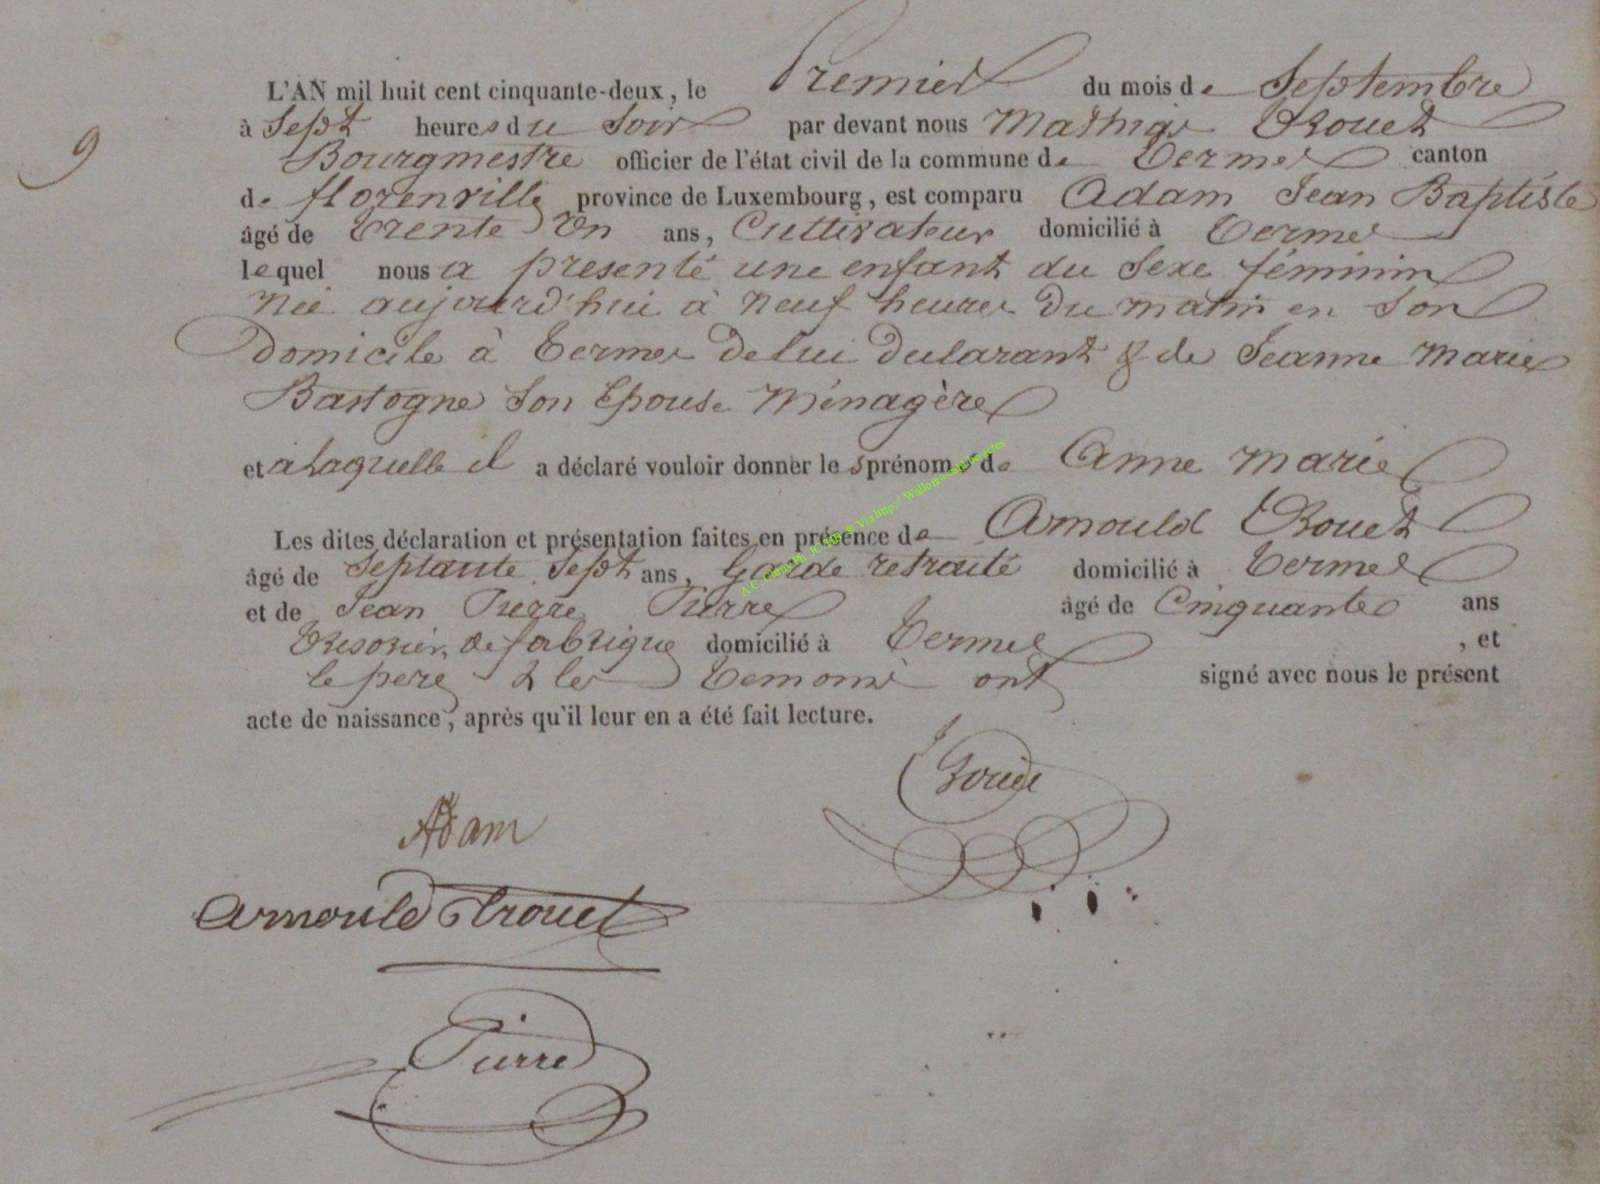 9
L'AN mil huit cent cinquante-deux, le Premier du mois de Septembre
à Sept heures du Soir par devant nous Mathias Rouet
Bourgmestre officier de l'état civil de la commune de Termes canton
de florenville province de Luxembourg, est comparu Adam Jean Baptiste
âgé de Trente Un ans, Cultivateur domicilié à Termes
lequel nous a presenté une enfant du Sexe féminin
née aujourd'hui à neuf heures du matin en Son
domicile à Termes de lui declarant & de Jeanne marie
Bastogne Son Epouse Ménagère
et a Laquelle il a déclaré vouloir donner les prénoms de Anne marie
Les dites déclaration et présentation faites en présence de Arnould Rouet
âgé de Septante Sept ans, Garde retraité domicilié à Termes
et de Jean Pierre Pierre âgé de Cinquante ans
Tresorier de fabrique domicilié à Termes, et
le pere & les Temoins ont signé avec nous le présent
acte de naissance, après qu'il leur en a été fait lecture.
Adam
Arnould
Pierre